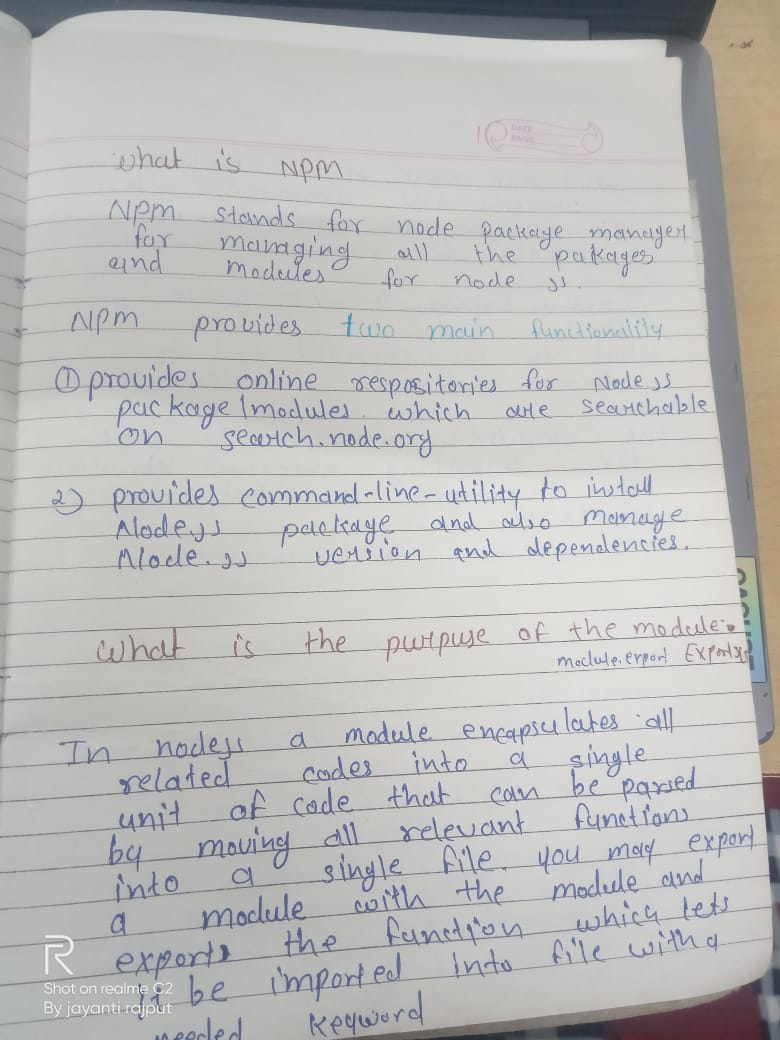 DATE
PAGE
what is NPM
NPM stands for node package manager
for managing all the pakages
and modules for node js.
NPM provides two main functionality
① provides online respositories for Node.js
package/modules. which are searchable
on search.node.org
2) provides command-line-utility to install
Node.js package and also manage
Node.js version and dependencies.
what is the purpuse of the module.
module.export Exports
In nodejs a module encapsulates all
related codes into a single
unit of code that can be parsed
by moving all relevant functions
into a single file. you may export
a module with the module and
exports the function which lets
it be imported into file with a
needed keyword
R
Shot on realme C2
By jayanti rajput